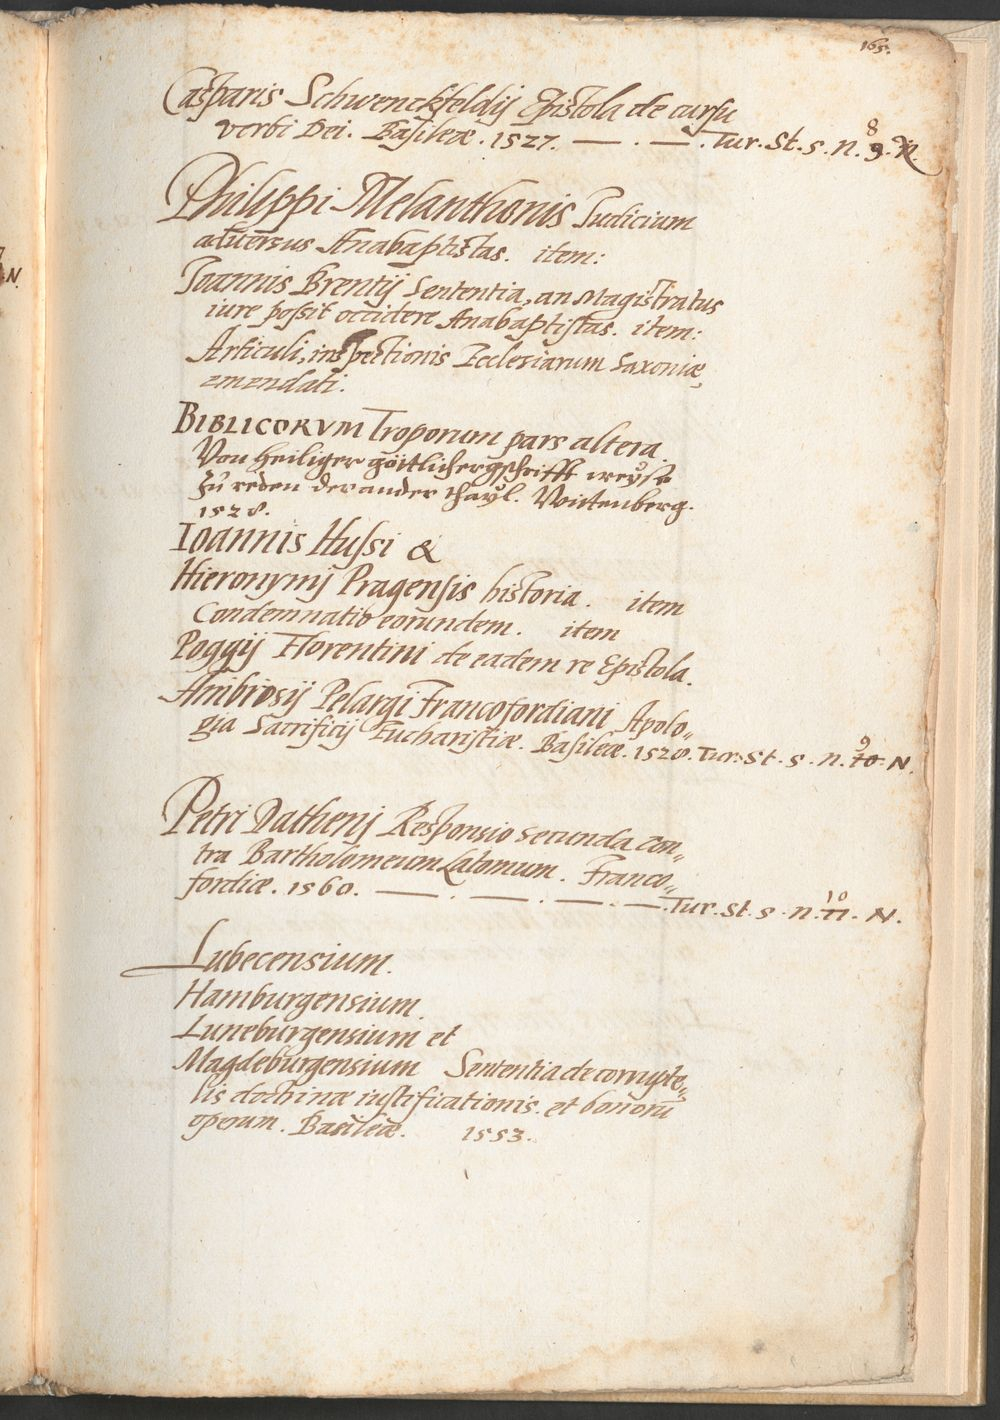 165.
Casparis Schwenckfeldij Epistola de cursu
verbi Dei. Basileæ. 1527. — . — . Tur. St. s. n. 9. 8 N.
Philippi Melanthonis Iudicium
adversus Anabaptistas. item:
Ioannis Brentij Sententia, an Magistratus
iure possit occidere Anabaptistas. item:
Articuli, inspectionis Ecclesiarum Saxoniæ,
emendati.
BIBLICORVM Troporum pars altera.
Von heiliger göttlicher gschrifft weyse
zů reden der ander thayl. Wittenberg.
1528.
Ioannis Hussi &
Hieronymij Pragensis historia. item
Condemnatio eorundem. item
Poggij Florentini de eadem re Epistola.
Ambrosij Pelargi Francofordiani Apolo„
gia Sacrificij Eucharistiæ. Basileæ. 1528. Tur. St. s. n. 10. 9 N.
Petri Dathenij Responsio secunda con„
tra Bartholomeum Latomum. Franco„
fordiæ. 1560. — . — . — . — . Tur. St. s. n. 11. 10 N.
Lubecensium.
Hamburgensium.
Luneburgensium et
Magdeburgensium Sententia de corrupte„
lis doctrinæ iustificationis. et bonorū
operum. Basileæ. 1553.
N.